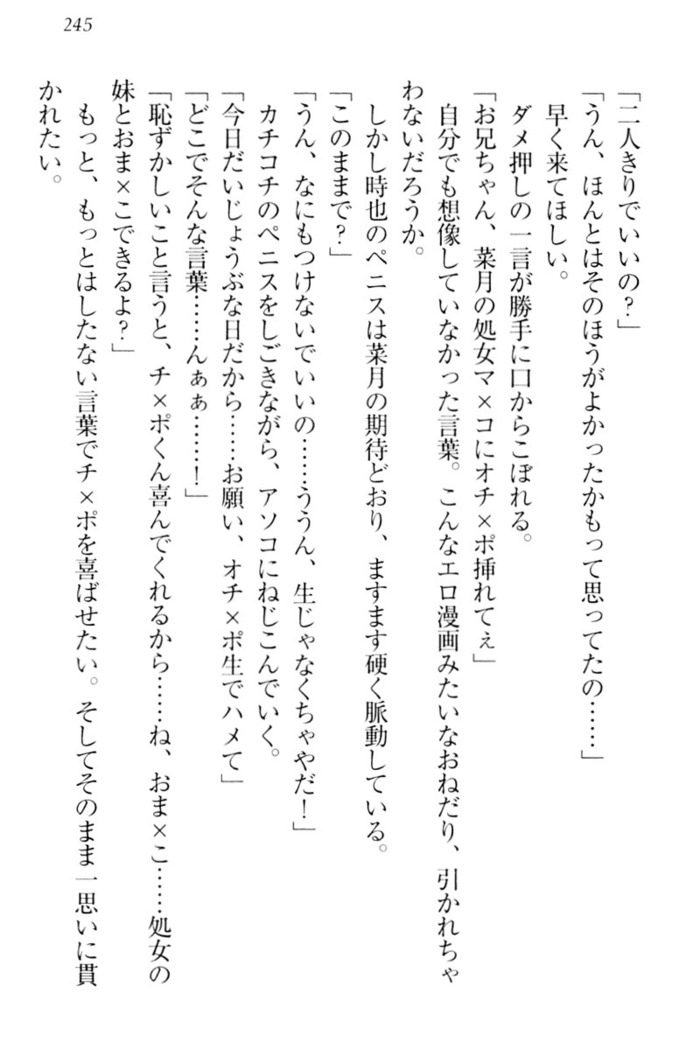 245
「二人きりでいいの？」
「うん、ほんとはそのほうがよかったかもって思ってたの……」
早く来てほしい。
ダメ押しの一言が勝手に口からこぼれる。
「お兄ちゃん、菜月の処女マ×コにオチ×ポ挿れてぇ」
自分でも想像していなかった言葉。こんなエロ漫画みたいなおねだり、引かれちゃ
わないだろうか。
しかし時也のペニスは菜月の期待どおり、ますます硬く脈動している。
「このままで？」
「うん、なにもつけないでいいの……ううん、生じゃなくちゃやだ！」
カチコチのペニスをしごきながら、アソコにねじこんでいく。
「今日だいじょうぶな日だから……お願い、オチ×ポ生でハメて」
「どこでそんな言葉……んぁぁ……！」
「恥ずかしいこと言うと、チ×ポくん喜んでくれるから……ね、おま×こ……処女の
妹とおま×こできるよ？」
もっと、もっとはしたない言葉でチ×ポを喜ばせたい。そしてそのまま一思いに貫
かれたい。